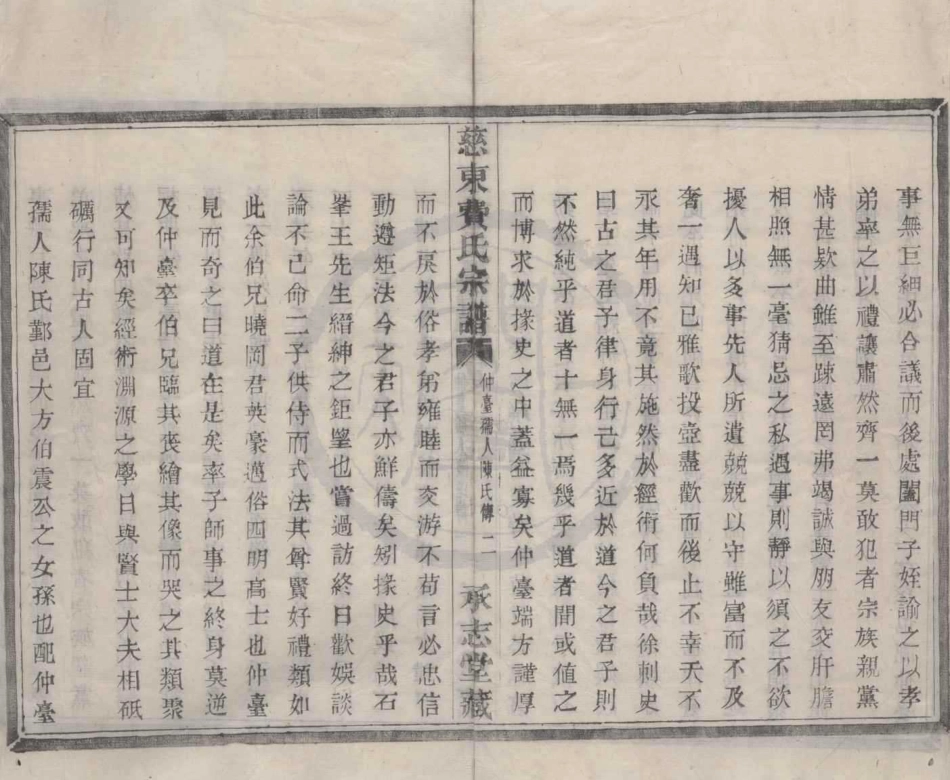 事無巨細必合議而後處闔門子姪諭之以孝
弟率之以禮讓肅然齊一莫敢犯者宗族親黨
情甚欵曲雖至踈遠罔弗竭誠與朋友交肝膽
相照無一毫猜忌之私遇事則靜以須之不欲
擾人以多事先人所遺兢兢以守雖富而不及
奢一遇知已雅歌投壺盡歡而後止不幸天不
永其年用不竟其施然於經術何負哉徐刺史
曰古之君子律身行己多近於道今之君子則
不然純乎道者十無一焉幾乎道者間或值之
而博求於掾史之中蓋益寡矣仲臺端方謹厚
慈東費氏宗譜 仲臺孺人陳氏傳 二 承志堂藏
而不戾於俗孝弟雍睦而交游不苟言必忠信
動遵矩法今之君子亦鮮儔矣矧掾史乎哉石
峯王先生縉紳之鉅望也嘗過訪終日歡娛談
論不已命二子供侍而式法其尊賢好禮類如
此余伯兄曉岡君英豪邁俗四明高士也仲臺
見而奇之曰道在是矣率子師事之終身莫逆
及仲臺卒伯兄臨其喪繪其像而哭之其類聚
又可知矣經術淵源之學日與賢士大夫相砥
礪行同古人固宜
孺人陳氏鄞邑大方伯震公之女孫也配仲臺